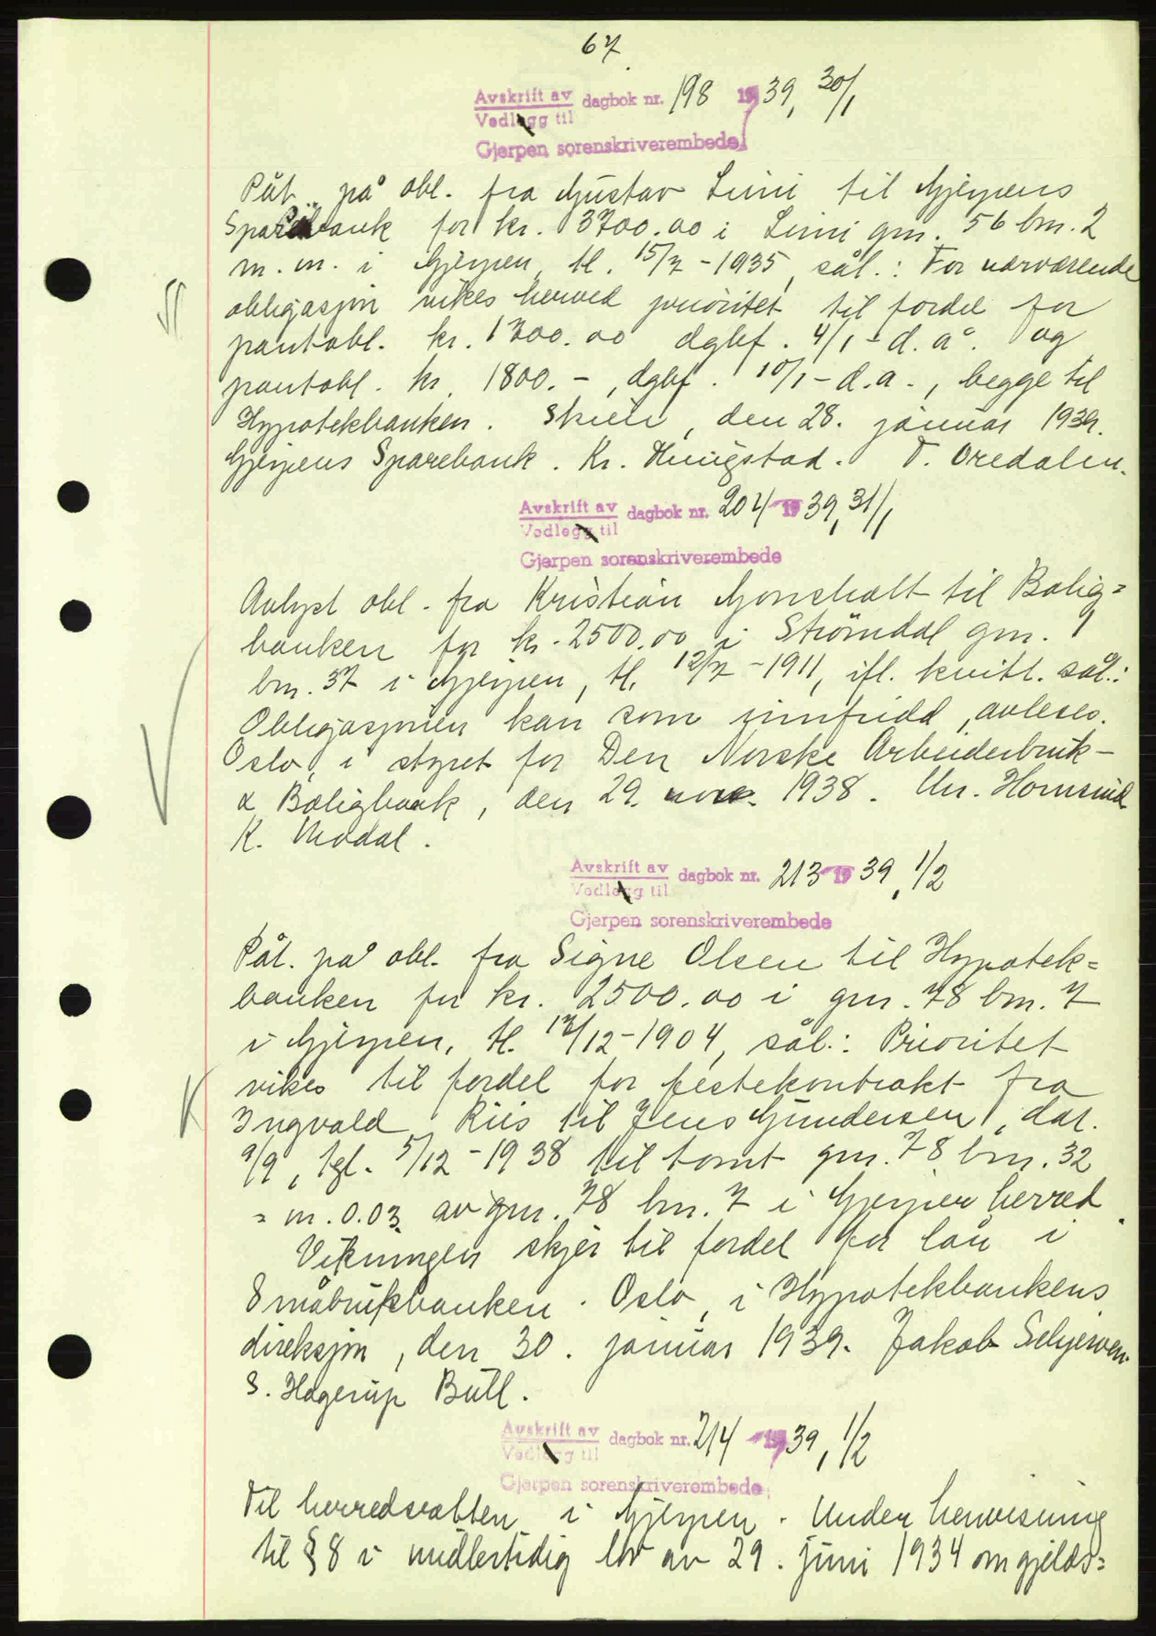 67.
Avskrift av dagbok nr. 198 1939, 30/1
Vedlegg til
Gjerpen sorenskriverembede
Påt. på obl. fra Gustav Limi til Gjerpens
Sparebank for kr. 3700.00 i Limi gnr. 56 bnr. 2
m. m. i Gjerpen, tl. 15/7-1935, sål.: For nærværende
obligasjon vikes herved prioritet til fordel for
pantobl. kr. 1300.00 dgbf. 4/1 - d. å. og
pantobl. kr. 1800.-, dgbf. 10/1 - d.a., begge til
Hypotekbanken. Skien, den 28. januar 1939.
Gjerpens Sparebank. Kr. Haugstad. T. Oredalen.
Avskrift av dagbok nr. 204 1939, 31/1
Vedlegg til
Gjerpen sorenskriverembede
Avlyst obl. fra Kristian Gonsholt til Bolig=
banken for kr. 2500.00 i Strömdal gnr. 1
bnr. 37 i Gjerpen, tl. 12/7-1911, ifl. kvitt. sål.:
Obligasjonen kan som innfridd, avleses.
Oslo, i styret for Den Norske Arbeiderbruk-
& Boligbank, den 29. nov. 1938. Chr. Hornsrud
K. Modal.
Avskrift av dagbok nr. 213 1939, 1/2
Vedlegg til
Gjerpen sorenskriverembede
Påt. på obl. fra Signe Olsen til Hypotek=
banken for kr. 2500.00 i gnr. 78 bnr. 7
i Gjerpen, tl. 12/12-1904, sål.: Prioritet
vikes til fordel for festekontrakt fra
K Ingvald Riis til Jens Gundersen, dat.
9/9, tgl. 5/12-1938 til tomt gnr. 78 bnr. 32
= m. 0.03 av gnr. 78 bnr. 7 i Gjerpen herred.
Vikningen skjer til fordel for lån i
Småbrukbanken. Oslo, i Hypotekbankens
direksjon, den 30. januar 1939. Jakob Schjerven.
S. Hagerup Bull.
Avskrift av dagbok nr. 214 1939, 1/2
Vedlegg til
Gjerpen sorenskriverembede
Til herredsretten i Gjerpen. Under henvisning
til § 8 i midlertidig lov av 29. juni 1934 om gjelds=